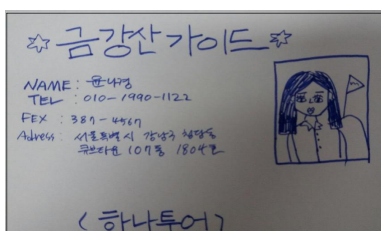 ☆금강산가이드☆
NAME : 윤나경
TEL : 010-1990-1122
FEX : 387-4567
Adress : 서울특별시 강남구 청담동
107동 1804호
(하나투어)